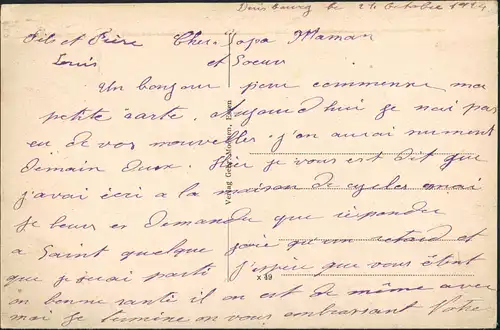 Duisbourg le 24 Octobre 1924
Fils et Frère Cher Papa Maman
Louis et Soeur
Un bonjour pour commencer ma
petite carte. Aujourd'hui je n'ai pas
eu de vos nouvelles j'en aurai
demain deux. Hier je vous est dit que
j'avai écri a la maison de cycles
je leurs es demander que répondre
a Saint quelque joie qu'un retard et
que j'étai parti j'espère que vous étent
en bonne santé il en est de même avec
moi je termine en vous embrassant Votre
Verlag Gebr. Essen
x 49